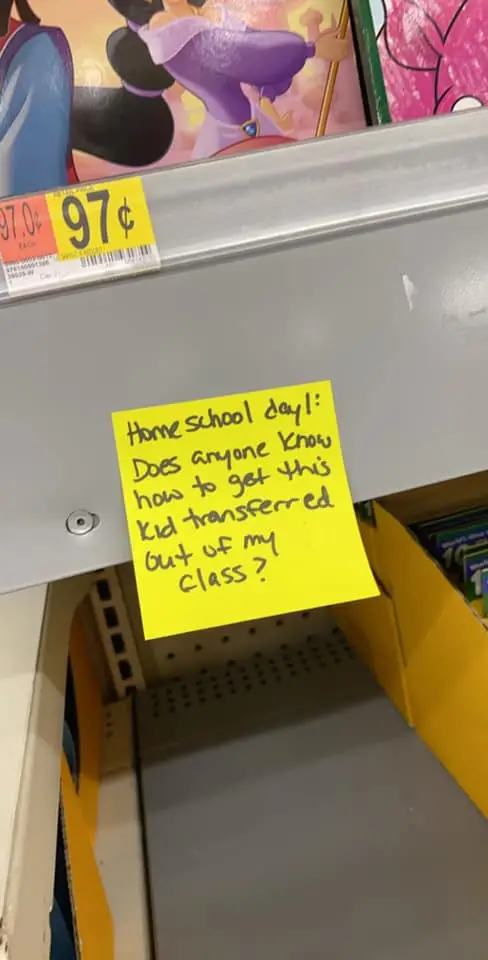 97.0¢
97¢
EACH
Home school day 1:
Does anyone know
how to get this
kid transferred
out of my
class?